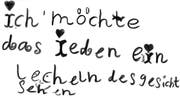 ich möchte
das ieden ein
lecheln des gesicht
sehen